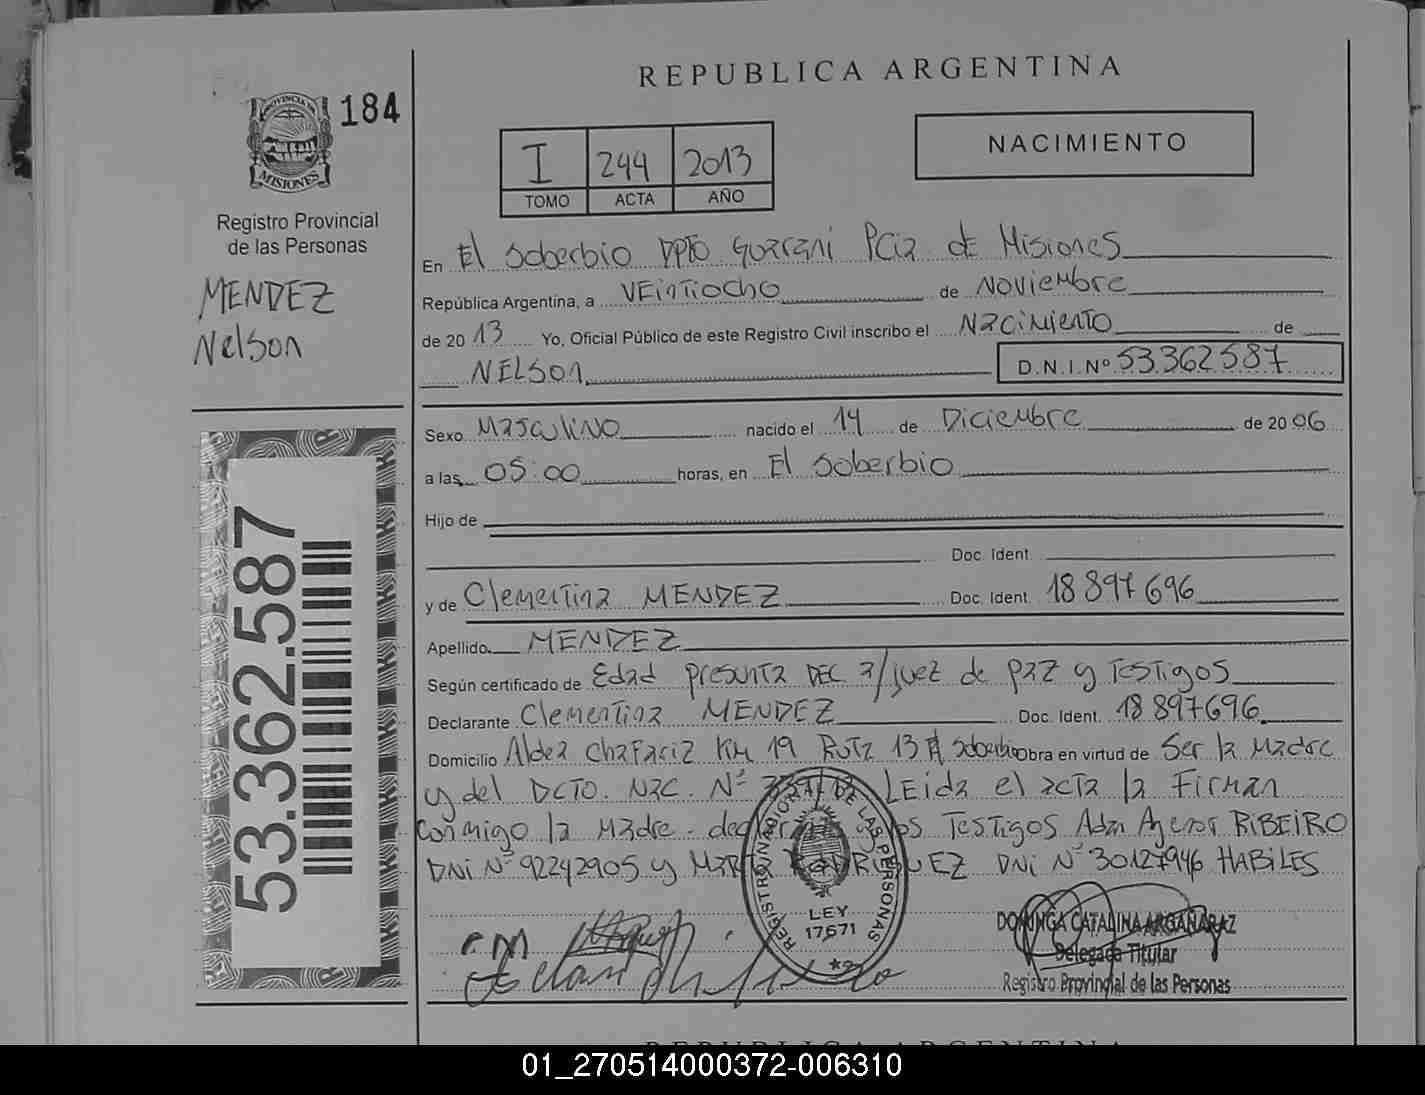 REPUBLICA ARGENTINA
PROVINCIA DE
MISIONES
184
I 244 2013
TOMO ACTA AÑO
NACIMIENTO
Registro Provincial
de las Personas
MENDEZ
Nelson
En El Soberbio DPTO Guarani Pcia de Misiones
República Argentina, a VEintiocho de Noviembre
de 2013 Yo, Oficial Público de este Registro Civil inscribo el Nacimiento de
NELSON D.N.I.Nº 53362587
Sexo Masculino nacido el 14 de Diciembre de 2006
a las 05:00 horas, en El Soberbio
Hijo de
Doc. Ident.
y de Clementina MENDEZ Doc. Ident. 18 897 696
Apellido MENDEZ
Según certificado de Edad presunta DEC. a/juez de paz y Testigos
Declarante Clementina MENDEZ Doc. Ident. 18 897696
Domicilio Aldea Chafariz Km 19 Ruta 13 El Soberbio Obra en virtud de Ser la Madre
y del DCTO. NAC. Nº LEida el acta la Firman
conmigo la Madre los Testigos Adan Agenor RIBEIRO
DNi Nº 92242905 y DNi Nº 30127946 HABILES
REGISTRO NACIONAL DE LAS PERSONAS
LEY
17671
C.M
DOMINGA CATALINA ARGAÑARAZ
Delegada Titular
Registro Provincial de las Personas
53.362.587
REPUBLICA ARGENTINA
01_270514000372-006310